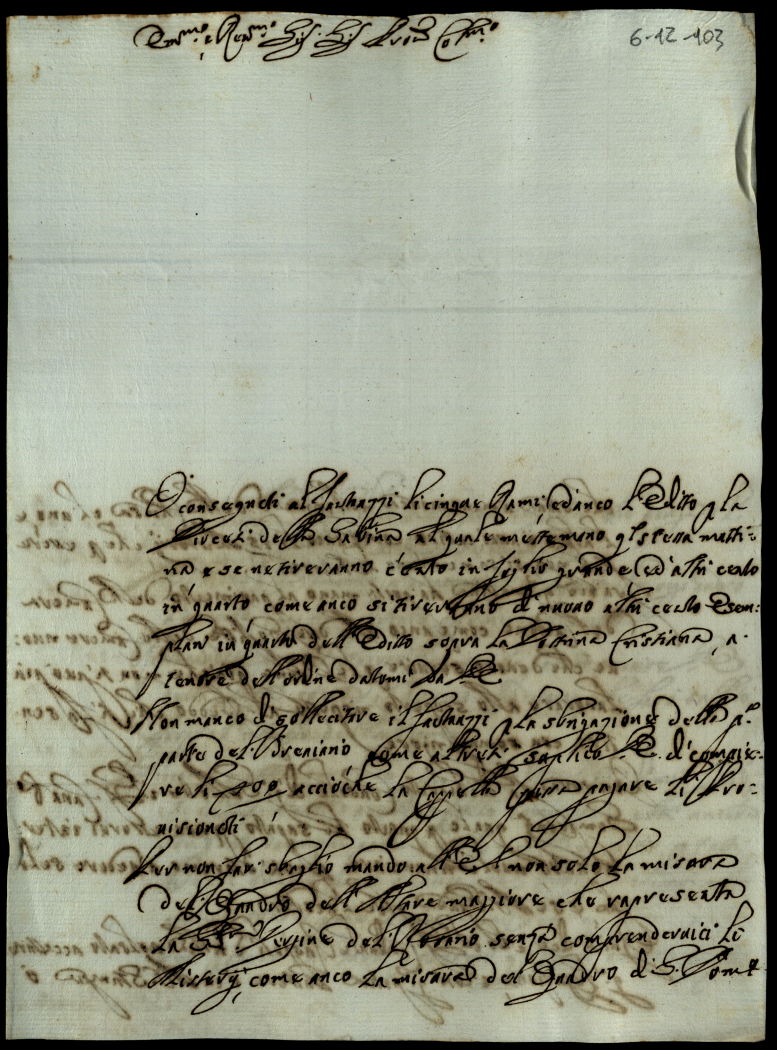 Em.mo e Rev.mo Sig. Sig. Pron. Col.mo
6-12-103
Consegnati al li cinque Rami, ed anco l'Editto p la
Sabina al quale mettemano q.sta stessa matti=
na e se ne tireranno cento in foglio grande, ed altri cento
in quarto come anco si tireranno di nuovo altri cento Esem=
plari in quarto dell'Editto sopra la Dottrina Cristiana, a
tenore dell'ordine datomi da V.E.
Non manco di sollecitare il p la sbrigazione della p.a
parte del Breviario come altresì suplico V.E. di
re li 400 acciòche la possa pagare li Pro=
visionati
Per non far sbaglio mando all'E.V. non solo la misura
del Quadro dell'Altare maggiore che rapresenta
la SS.ma Vergine del Rosario senza comprendervici li
Misterij, come anco la misura del Quadro di S. Dom.co